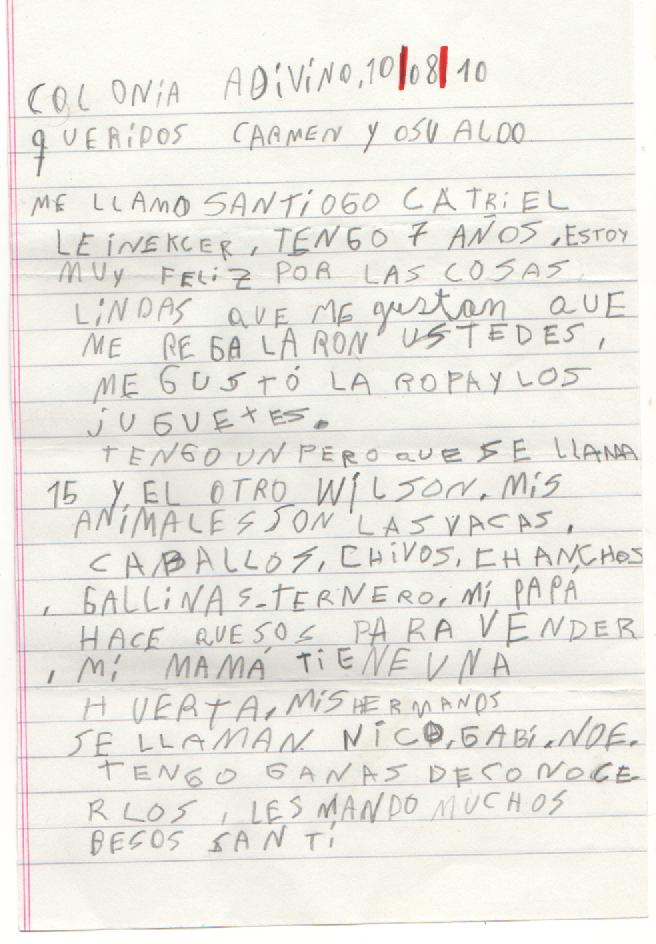 COLONiA ADiViNO, 10/08/10
qUERiDOS CARMEN Y OSVALDO
ME LLAMO SANTiOGO CATRiEL
LEiNEKCER, TENGO 7 AÑOS, ESTOY
MUY FELiZ POR LAS COSAS
LiNDAS QUE ME gustan QUE
ME REGALARON USTEDES,
ME GUSTÓ LA ROPA Y LOS
jUGUETES.
TENGO UN PERO QUE SE LLAMA
15 Y EL OTRO WiLSON. MiS
ANiMALES SON LAS VACAS,
CABALLOS, CHiVOS, CHANCHOS
, GALLiNAS-TERNERO, Mi PAPÁ
HACE QUESOS PARA VENDER
, Mi MAMÁ TiENE UNA
HUERTA, MiS HERMANOS
SE LLAMAN NiCO, GABi, NOE.
TENGO GANAS DE CONOCE
RLOS, LES MANDO MUCHOS
BESOS SANTi